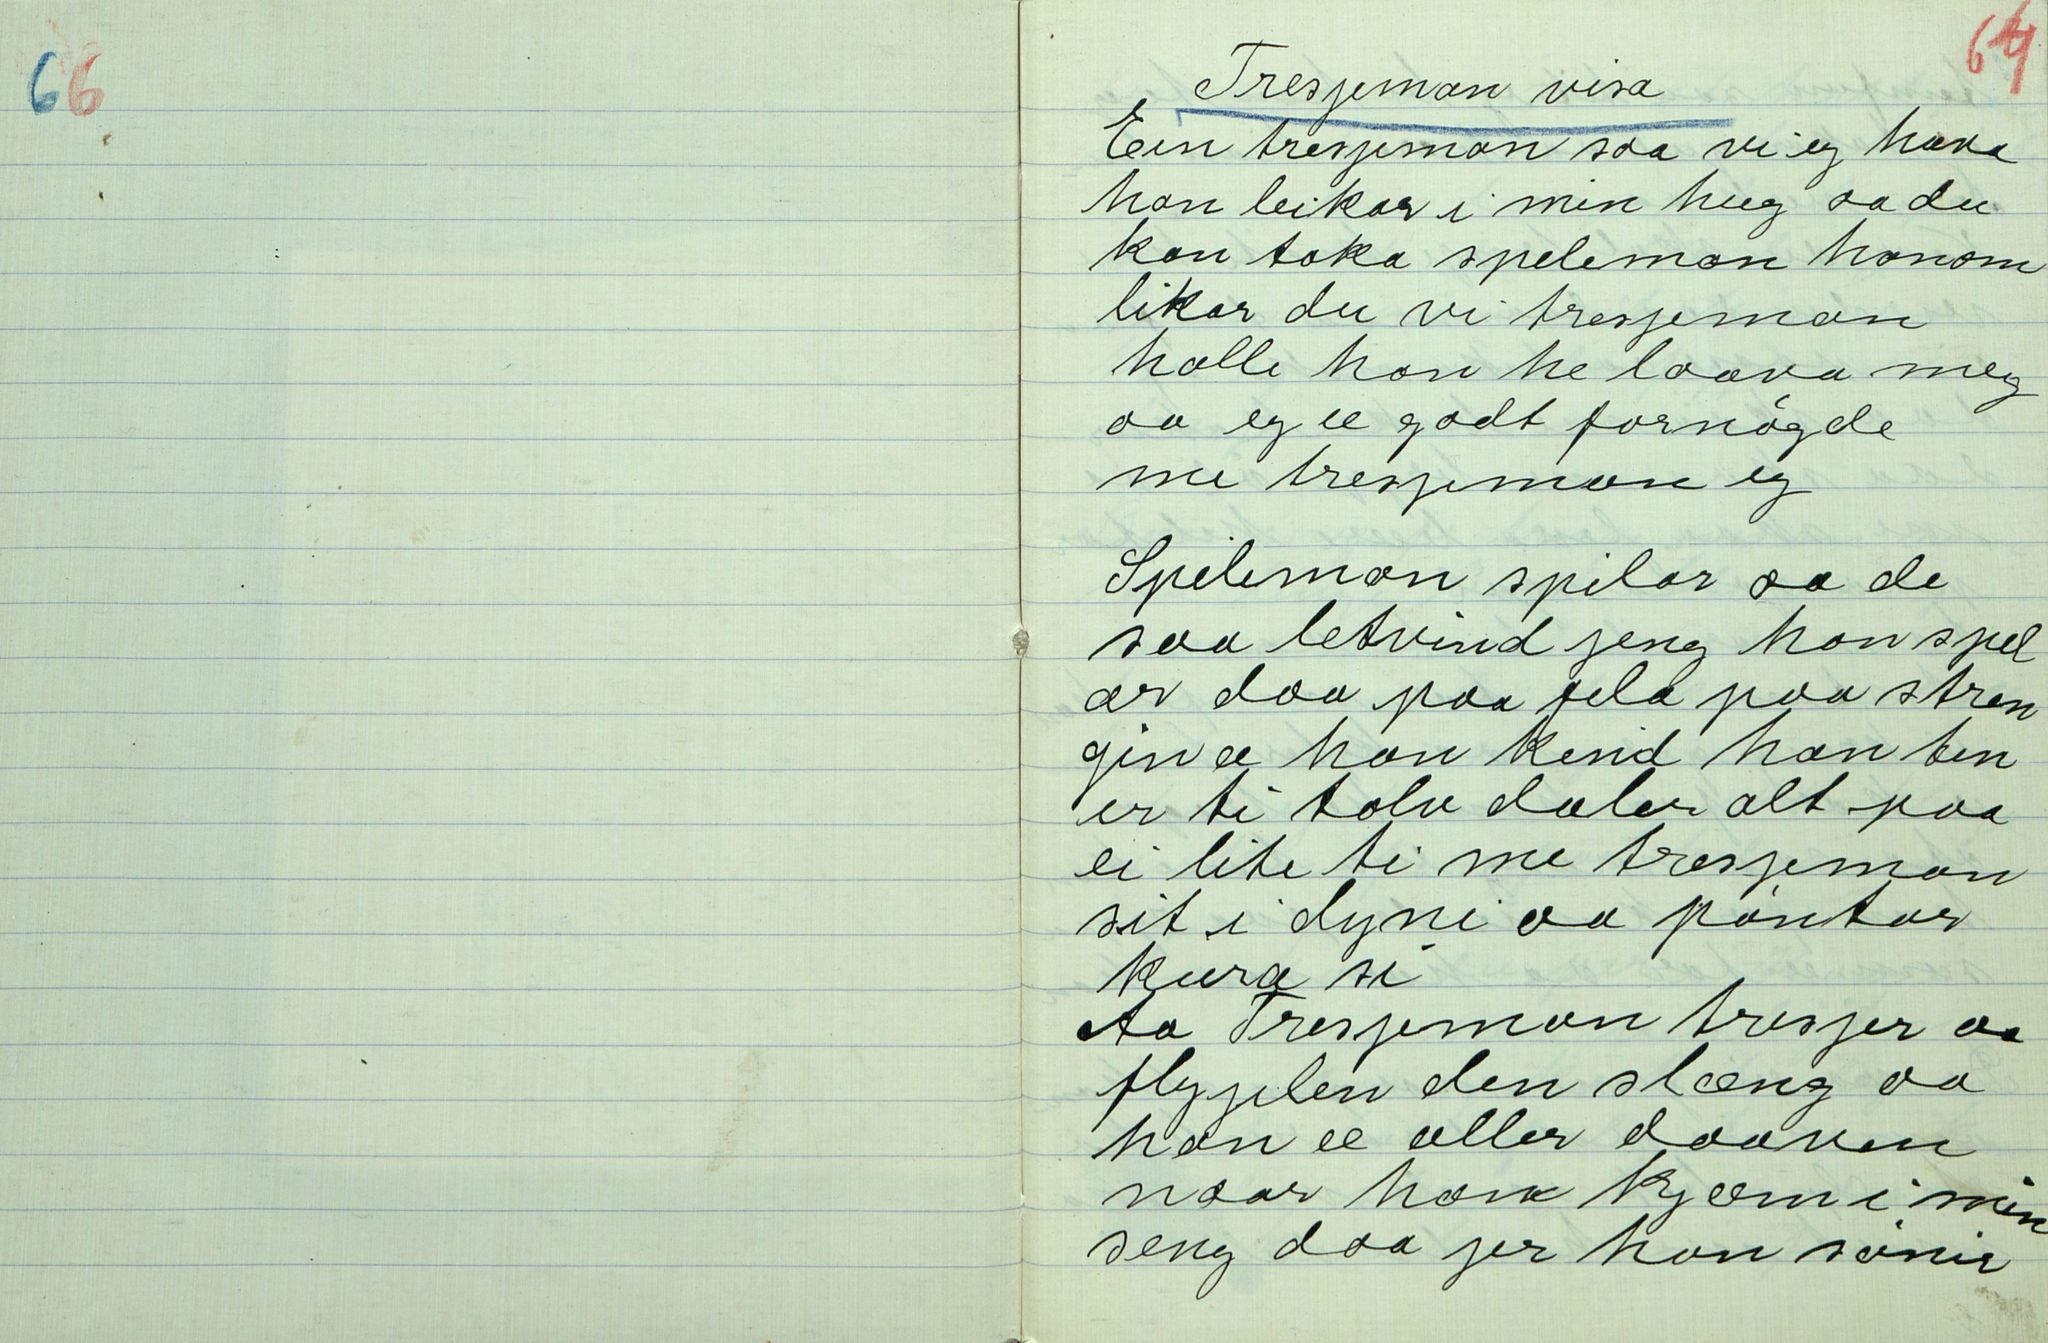 66
64
Tresjeman visa
Ein tresjeman saa vi eg hava
han leikar i min hug aa du
kan taka speleman honom
likar du vi tresjeman
halle han he laava meg
aa eg æ godt fornögde
me tresjeman eg
Speleman spilar aa de
saa letvind jeng han spel
ar daa paa fela paa stren
gin æ han kend han ten
er ti tolv daler alt paa
ei lite ti me tresjeman
sit i dyni aa pöntar
kura si
Aa Tresjeman tresjer aa
flygjelen den slæng aa
han æ aller daaven
naar han kjæm i min
seng daa jer han sönie